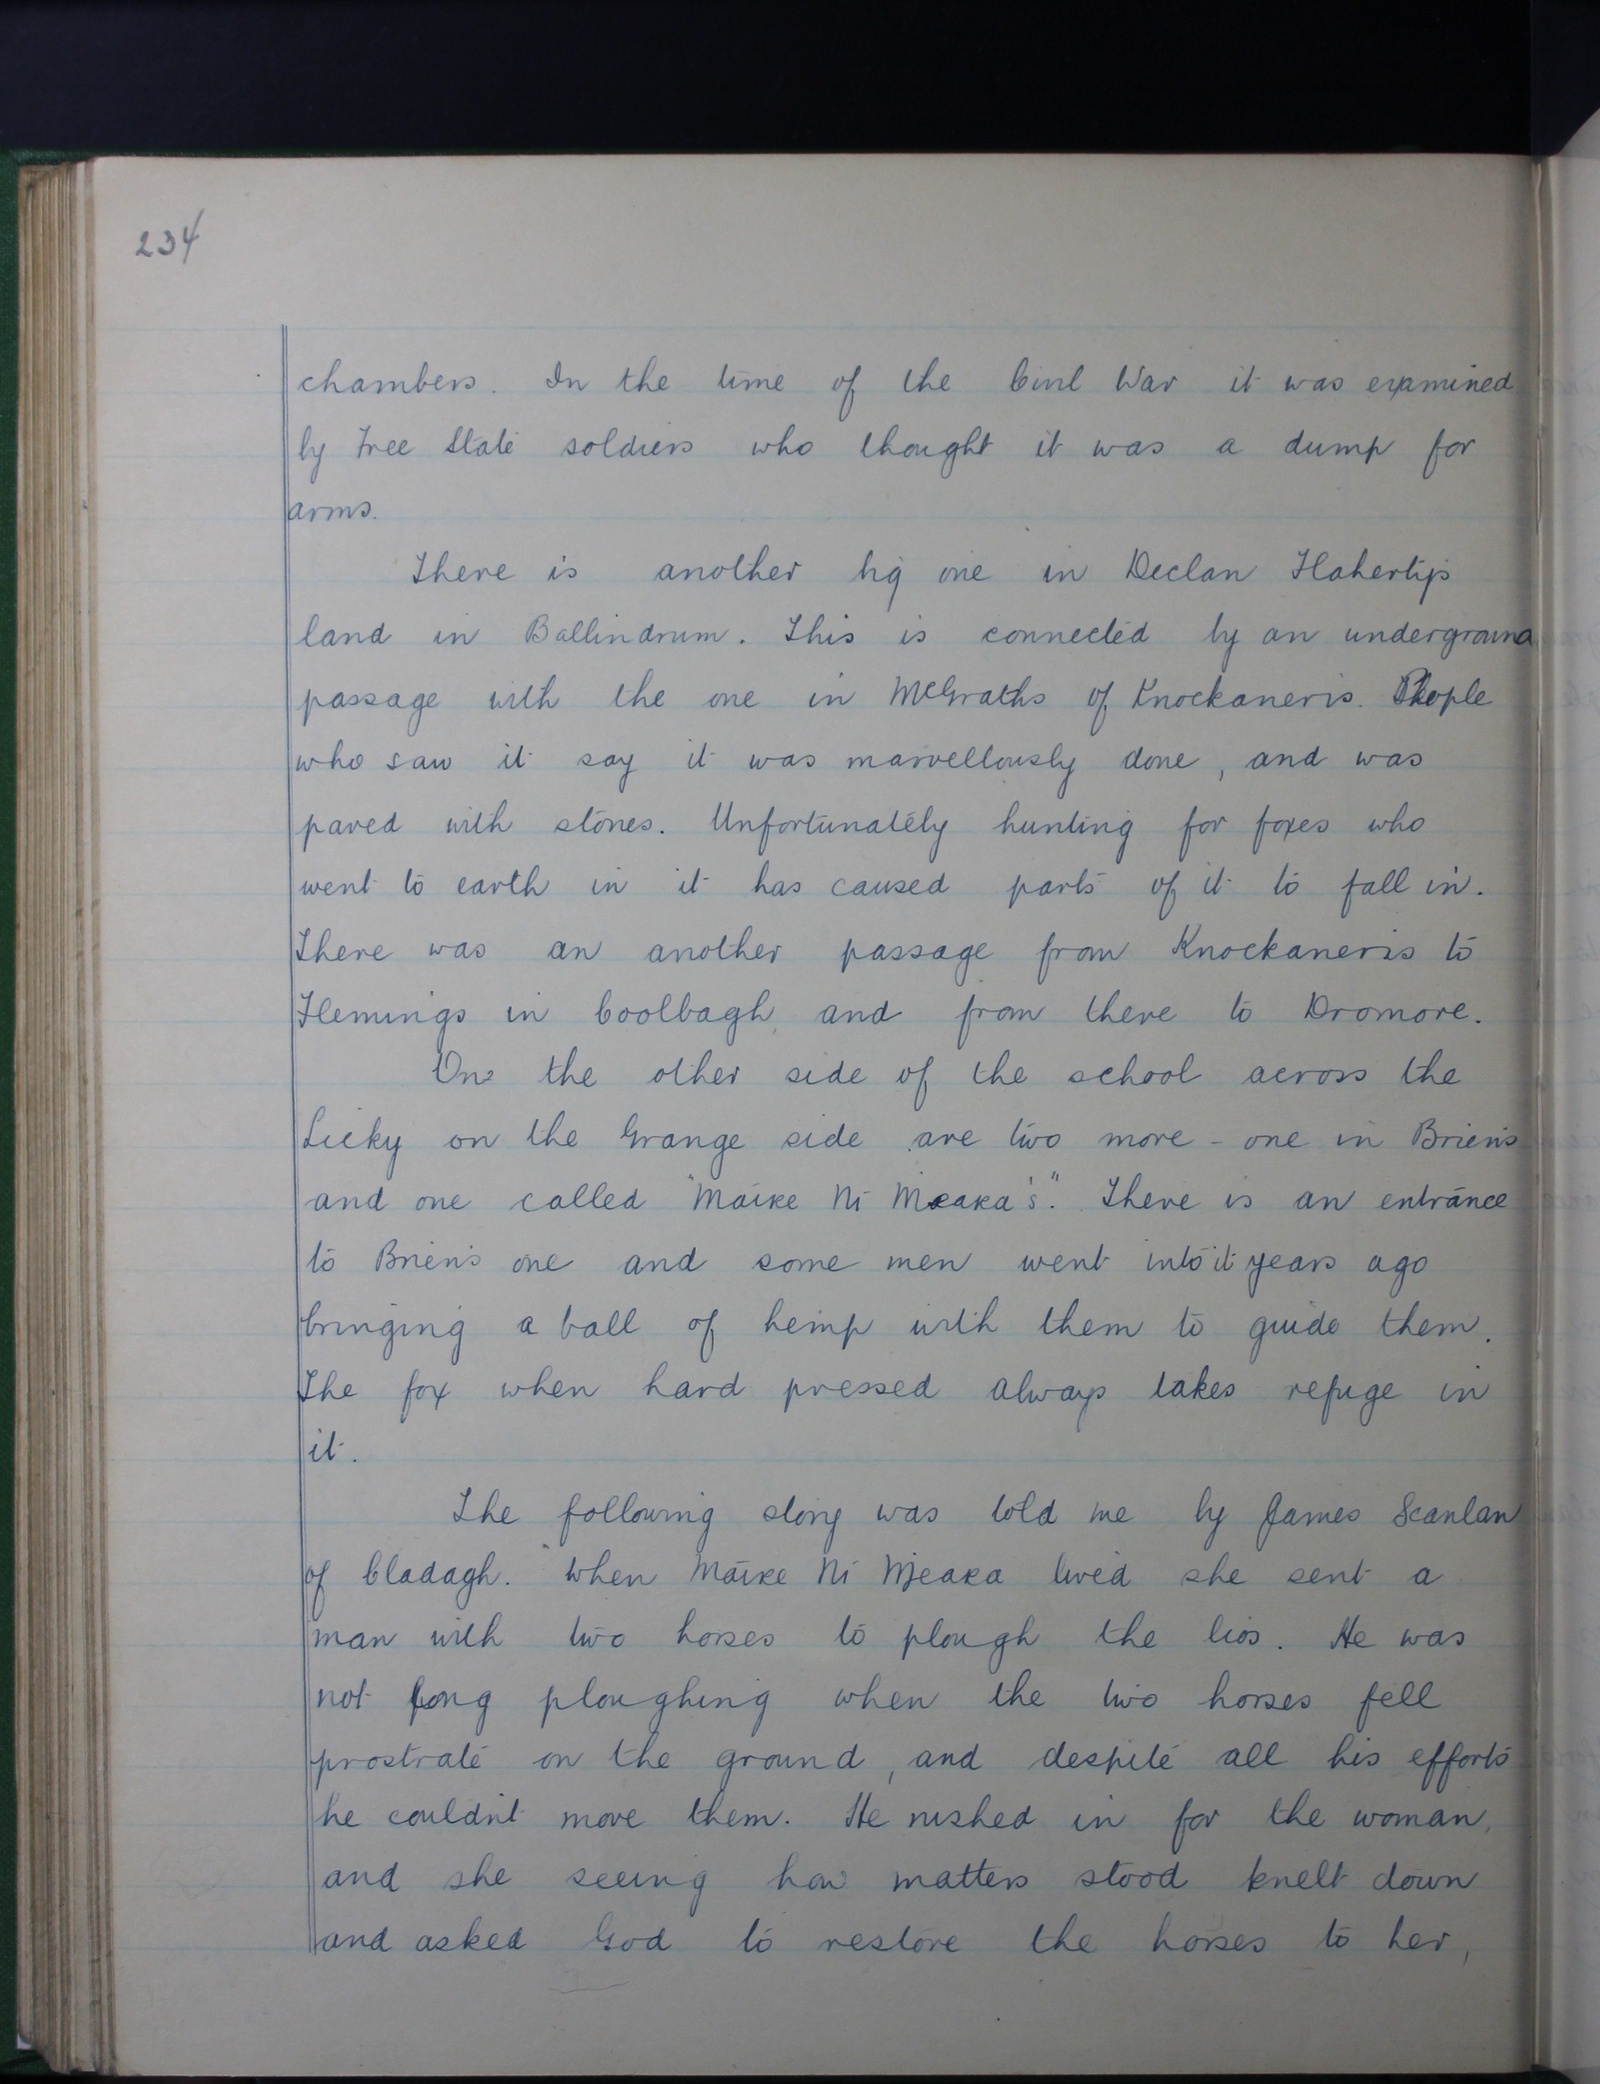 234
chambers. In the time of the Civil War it was examined
by Free State soldiers who thought it was a dump for
arms.
There is another big one in Declan Flaherty's
land in Ballindrum. This is connected by an underground
passage with the one in McGraths of Knockaneris. People
who saw it say it was marvellously done, and was
paved with stones. Unfortunately hunting for foxes who
went to earth in it has caused parts of it to fall in.
There was an another passage from Knockaneris to
Flemings in Coolbagh and from there to Dromore.
On the other side of the school across the
Licky on the Grange side are two more - one in Brien's
and one called "Máire Ní Meara's". There is an entrance
to Brien's one and some men went into it years ago
bringing a ball of hemp with them to guide them.
The fox when hard pressed always takes refuge in
it.
The following story was told me by James Scanlan
of Cladagh. "When Máire Ní Meara lived she sent a
man with two horses to plough the lios. He was
not long ploughing when the two horses fell
prostrate on the ground, and despite all his efforts
he couldn't move them. He rushed in for the woman,
and she seeing how matters stood knelt down
and asked God to restore the horses to her,